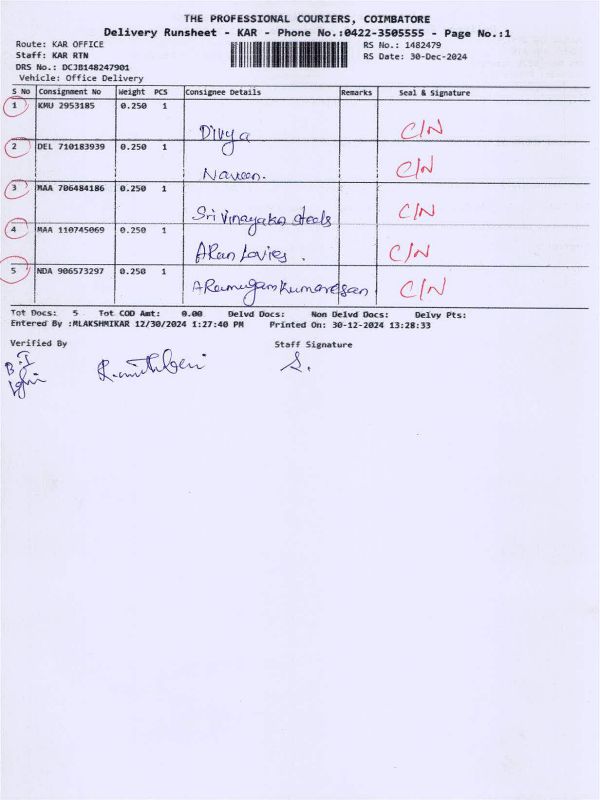 THE PROFESSIONAL COURIERS, COIMBATORE
Delivery Runsheet - KAR - Phone No.:0422-3505555 - Page No.:1
Route: KAR OFFICE RS No.: 1482479
Staff: KAR RTN RS Date: 30-Dec-2024
DRS No.: DCJB148247901
Vehicle: Office Delivery
S No Consignment No Weight PCS Consignee Details Remarks Seal & Signature
1 KMU 2953185 0.250 1
Divya C/N
2 DEL 710183939 0.250 1
Naveen. C/N
3 MAA 706484186 0.250 1
Sri Vinayaka steels C/N
4 MAA 110745069 0.250 1
C/N
5 NDA 906573297 0.250 1
C/N
Tot Docs: 5 Tot COD Amt: 0.00 Delvd Docs: Non Delvd Docs: Delvy Pts:
Entered By :MLAKSHMIKAR 12/30/2024 1:27:40 PM Printed On: 30-12-2024 13:28:33
Verified By Staff Signature
S.